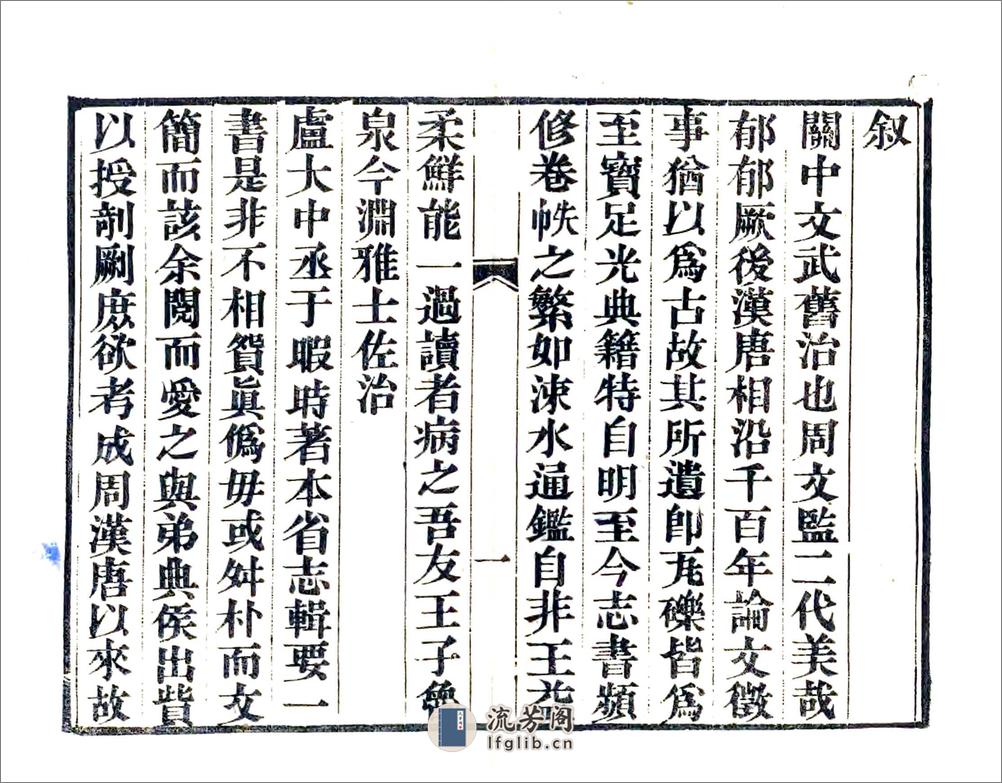 叙
關中文武舊治也周文監二代美哉
郁郁厥後漢唐相沿千百年論文徵
事猶以爲古故其所遺卽瓦礫皆爲
至寶足光典籍特自明至今志書頻
修卷帙之繁如涑水通鑑自非王益
一
柔鮮能一過讀者病之吾友王子
泉今淵雅士佐治
盧大中丞于暇時著本省志輯要一
書是非不相貿眞僞毋或舛朴而文
簡而該余閱而愛之與弟典侯出貲
以授剞劂庶欲考成周漢唐以來故
流芳阁
lfglib.cn